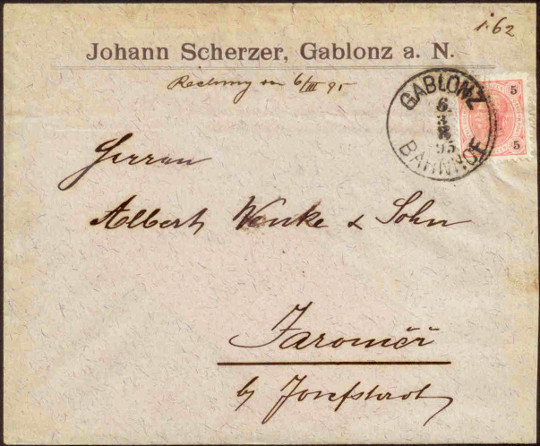 1.62
Johann Scherzer, Gablonz a. N.
Rechnung von 6/III 95
GABLONZ
6.
3
95
BAHNHOF
5
5
Herren
Albert Wenke & Sohn
Jaroměř
by Josefstadt